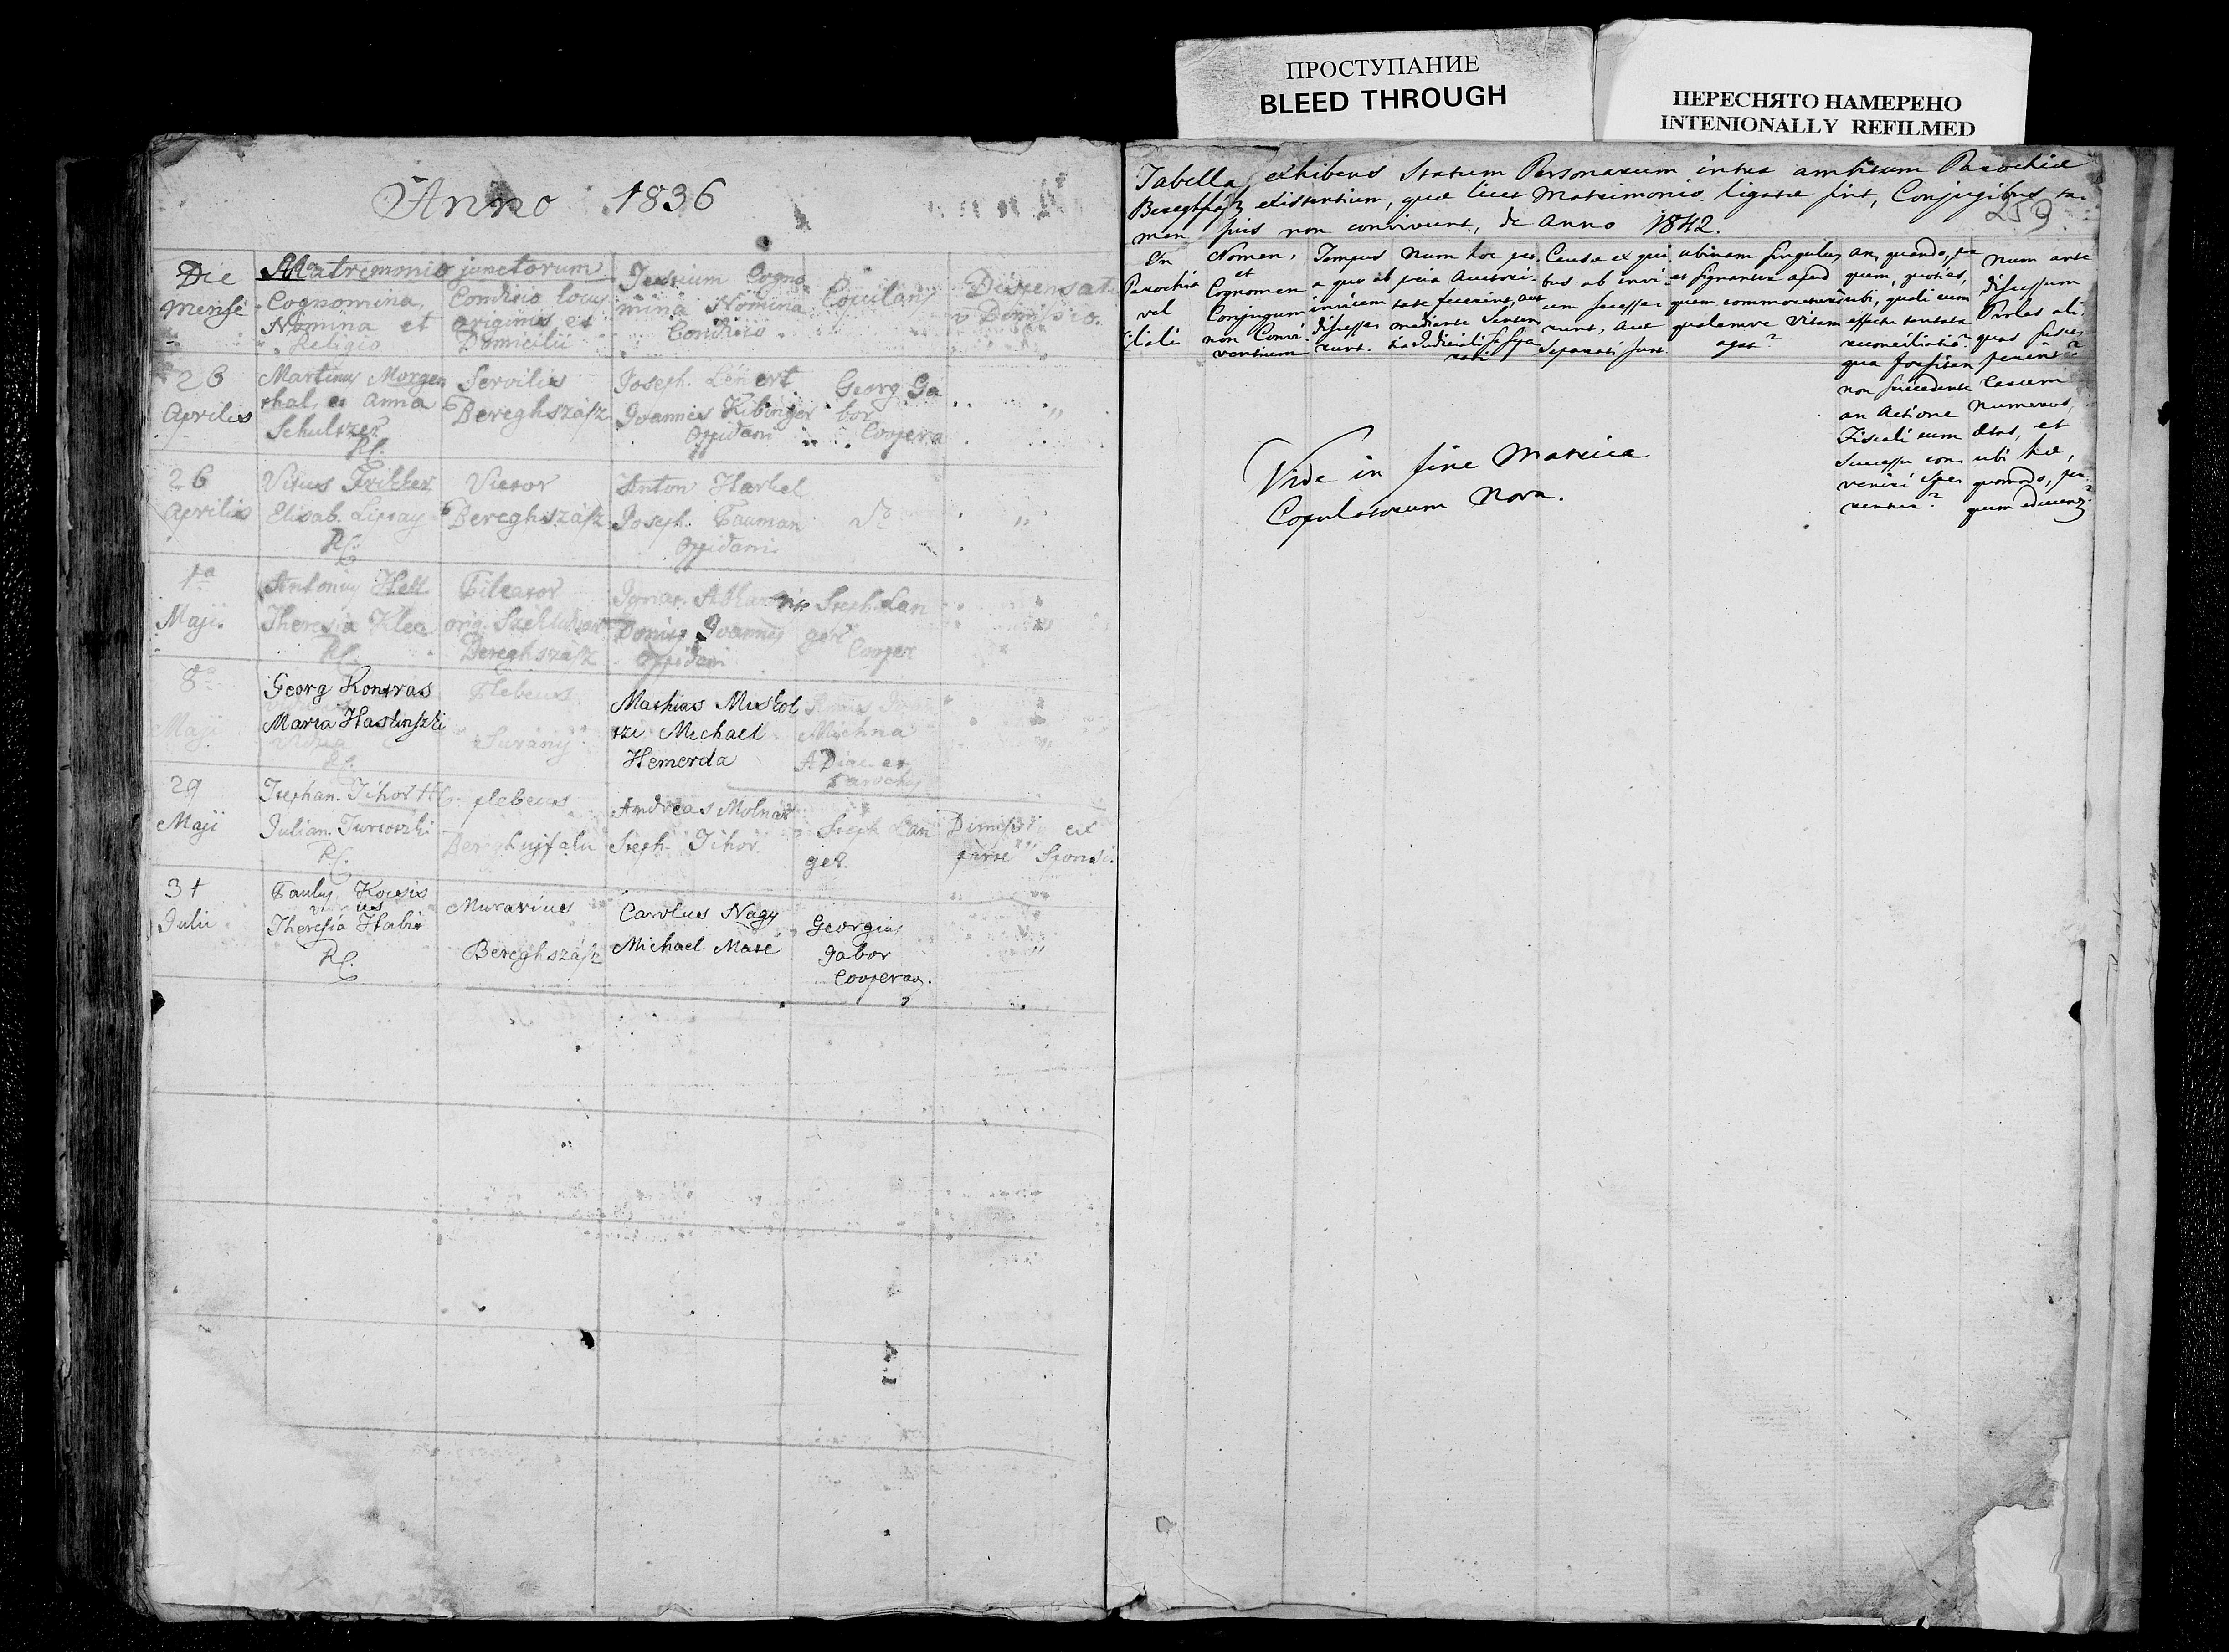 ПРОСТУПАНИЕ
BLEED THROUGH
ПЕРЕСНЯТО НАМЕРЕНО
INTENIONALLY REFILMED
Anno 1836
Die
Mense
Matrimonio junctorum
Cognomina
Nomina et
Religio
Conditio locus
originis et
Domicilii
Testium Cogno
mina Nomina
Conditio
Copulans
Dispensat.
v Dimissio.
26
Aprilis
Martinus Morgen
thal et Anna
Schultzer
RC.
Servilis
Bereghszász
Joseph. Lénert
Joannes Kibinger
Oppidani
Georg Ga
bor
Coopera
26
Aprilis
Vitus Frikker
Elisab. Lippay
RC.
Vietor
Bereghszász
Anton Harkel
Joseph. Tauman
Oppidani
1a
Maji.
Antonius Hell
Theresia Klea
RC.
Pileator
orig.
Bereghszász
Joannes
Oppidani
Steph. Lan
ger
Cooper
8a
Maji
Georg Kontras
Maria Haslinszki
RC.
Plebeus
Surány
Mathias Miskol
tzi Michael
Hemerda
Michna
ADiac et
Parochus
29
Maji
Stephan. Tihor
Julian. Turtoszki
RC.
plebeus
Bereghujfalu
Andreas Molnár
Steph. Tihor
Steph Lan
ger.
Dimiss. ex
parte Sponsi.
31
Julii
Paulus Kocsis
Theresia Habir
RC.
Murarius
Bereghszász
Carolus Nagy
Michael Mate
Georgius
Gabor
Cooperar.
Tabella exhibens Statum Personarum intra ambitum Parochiæ
Bereghszász existentium, quæ licet Matrimonio ligatæ sint, Conjugibus ta-
men suis non convivunt, de Anno 1842.
259
In
Parochia
vel
filiali
Nomen,
et
Cognomen
Conjugum
non Convi-
ventium
Tempus
a quo ab
invicem
discesse
runt.
Num hoc pro
pria Autori-
tate fecerint, aut
mediante Senten
tia Judiciali sepa
rati
Causa ex qui
bus ab invi-
cem secesse
runt, aut
Separati sunt.
ubinam singulus
et signanter apud
quem commoretur
qualemve Vitam
agat?
an, quando, per
quem, quoties,
ubi, quali cum
effectu tentata
reconciliatio?
qua forsitan
non succedente
an Actione
Fiscali cum
Successu con
veniri
Num ante
discessum
Proles ali-
quas susce
perint?
earum
Numerus,
ætas, et
ubi hæ,
quomodo, per
quem educentur?
Vide in fine Matricæ
Copulatorum Nova.